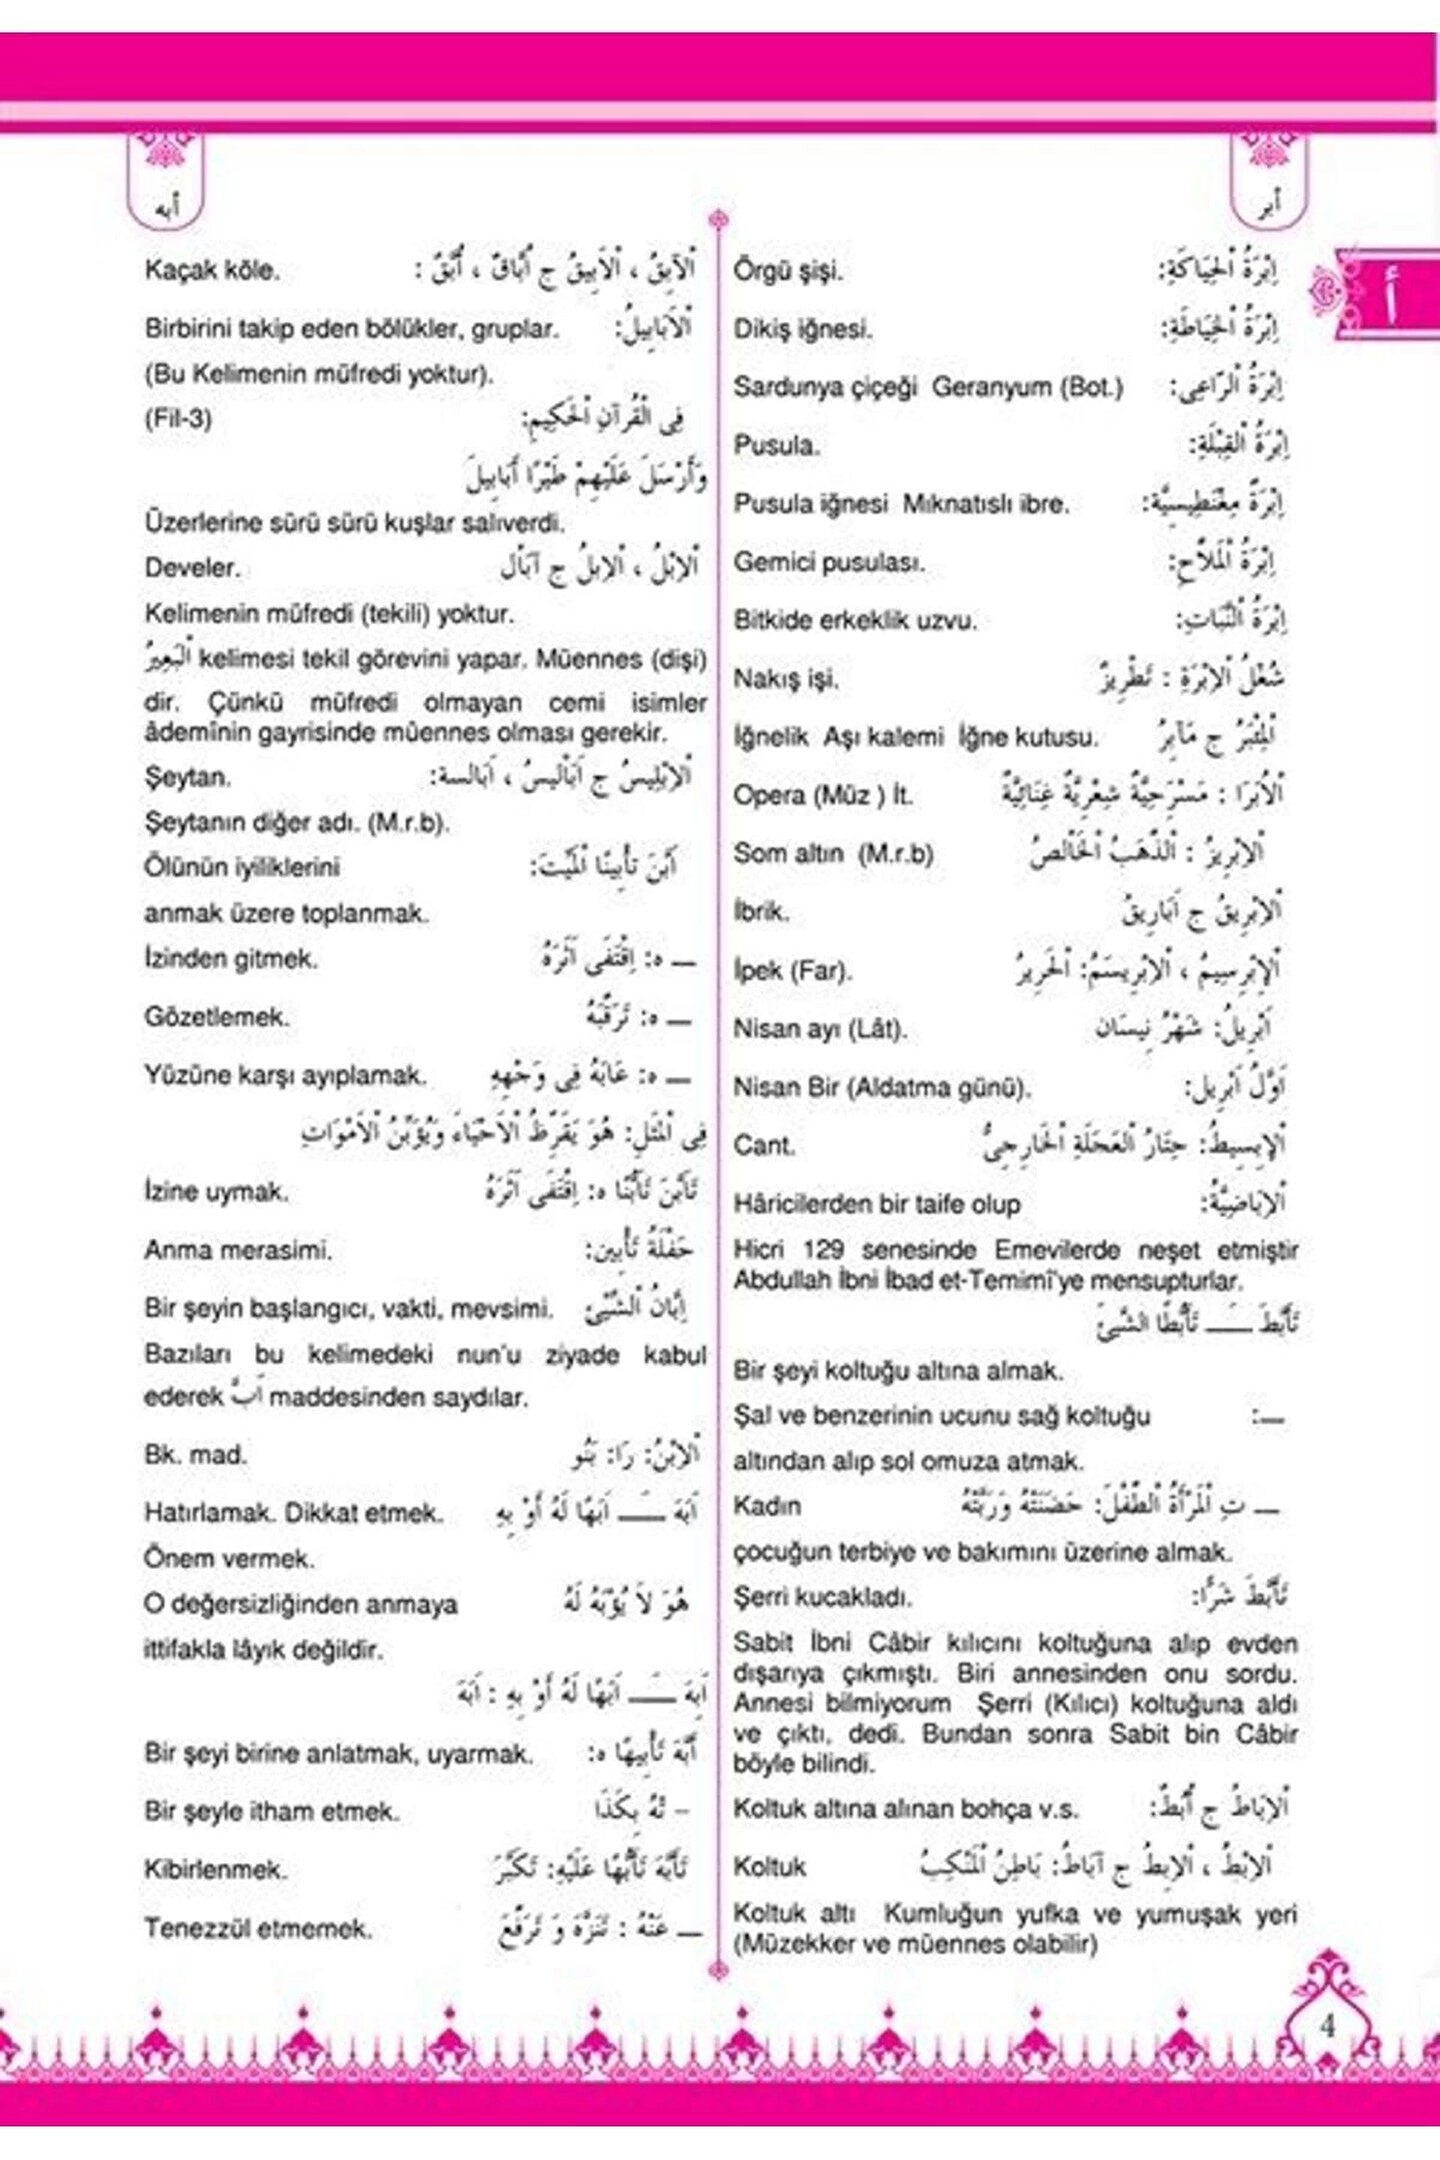 أبر
أبه
أ
إِبْرَةُ الْحِيَاكَةِ: Örgü şişi.
إِبْرَةُ الْخِيَاطَةِ: Dikiş iğnesi.
إِبْرَةُ الرَّاعِى: Sardunya çiçeği Geranyum (Bot.)
إِبْرَةُ الْقِبْلَةِ: Pusula.
إِبْرَةٌ مِغْنَطِيسِيَّة: Pusula iğnesi Mıknatıslı ibre.
إِبْرَةُ الْمَلاَّحِ: Gemici pusulası.
إِبْرَةُ النَّبَاتِ: Bitkide erkeklik uzvu.
شُغْلُ الْاِبْرَةِ : تَطْرِيزٌ Nakış işi.
اَلْمِئْبَرُ ج مَآبِرُ İğnelik Aşı kalemi İğne kutusu.
اَلْأُبَرَا : مَسْرَحِيَّةٌ شِعْرِيَّةٌ غِنَائِيَّةٌ Opera (Müz ) İt.
اَلْاِبْرِيزُ : اَلذَّهَبُ الْخَالِصُ Som altın (M.r.b)
اَلْاِبْرِيقُ ج اَبَارِيقُ İbrik.
اَلْاِبْرِسِيمُ ، اَلْاِبْرِيسَمُ: اَلْحَرِيرُ İpek (Far).
اَبْرِيلُ: شَهْرُ نِيسَان Nisan ayı (Lât).
اَوَّلُ اَبْرِيل: Nisan Bir (Aldatma günü).
اَلْاِبِسِيطُ: حِتَارُ الْعَجَلَةِ الْخَارِجِىُّ Cant.
اَلْاِبَاضِيَّةُ: Hâricilerden bir taife olup
Hicri 129 senesinde Emevilerde neşet etmiştir
Abdullah İbni İbad et-Temimî'ye mensupturlar.
تَأَبَّطَ ــَـ تَأَبُّطًا الشَّيْئَ
Bir şeyi koltuğu altına almak.
ــ: Şal ve benzerinin ucunu sağ koltuğu
altından alıp sol omuza atmak.
ــ تِ الْمَرْأَةُ الطِّفْلَ: حَضَنَتْهُ وَرَبَّتْهُ Kadın
çocuğun terbiye ve bakımını üzerine almak.
تَأَبَّطَ شَرًّا: Şerri kucakladı.
Sabit İbni Câbir kılıcını koltuğuna alıp evden
dışarıya çıkmıştı. Biri annesinden onu sordu.
Annesi bilmiyorum Şerri (Kılıcı) koltuğuna aldı
ve çıktı, dedi. Bundan sonra Sabit bin Câbir
böyle bilindi.
اَلْاِبَاطُ ج أُبُطٌ: Koltuk altına alınan bohça v.s.
اَلْاِبْطُ ، اَلْاِبِطُ ج آبَاطٌ: بَاطِنُ الْمَنْكِبُ Koltuk
Koltuk altı Kumluğun yufka ve yumuşak yeri
(Müzekker ve müennes olabilir)
اَلْآبِقُ ، اَلْاَبِيقُ ج أُبَّاقٌ ، أُبَّقٌ : Kaçak köle.
اَلْاَبَابِيلُ: Birbirini takip eden bölükler, gruplar.
(Bu Kelimenin müfredi yoktur).
فِى الْقُرْآنِ الْحَكِيمِ: (Fil-3)
وَأَرْسَلَ عَلَيْهِمْ طَيْرًا أَبَابِيلَ
Üzerlerine sürü sürü kuşlar salıverdi.
اَلْاِبْلُ ، اَلْاِبِلُ ج آبَال Develer.
Kelimenin müfredi (tekili) yoktur.
اَلْبَعِيرُ kelimesi tekil görevini yapar. Müennes (dişi)
dir. Çünkü müfredi olmayan cemi isimler
âdemînin gayrisinde müennes olması gerekir.
اَلْاِبْلِيسُ ج اَبَالِيسُ ، اَبَالسة: Şeytan.
Şeytanın diğer adı. (M.r.b).
اَبَّنَ تأبِينًا الْمَيِّتَ: Ölünün iyiliklerini
anmak üzere toplanmak.
ــ ه: اِقْتَفَى آثَرَهُ İzinden gitmek.
ــ ه: تَرَقَّبَهُ Gözetlemek.
ــ ه: عَابَهُ فِى وَجْهِهِ Yüzüne karşı ayıplamak.
فِى الْمَثَلِ: هُوَ يَقَرِّظُ الْاَحْيَاءَ وَيُؤَبِّنُ الْاَمْوَاتِ
تَأَبَّنَ تَأَبُّنًا ه: اِقْتَفَى آثَرَهُ İzine uymak.
حَفْلَةُ تَأْبِين: Anma merasimi.
اِبَّانُ الشَّيْئِ Bir şeyin başlangıcı, vakti, mevsimi.
Bazıları bu kelimedeki nun'u ziyade kabul
ederek اَبَّ maddesinden saydılar.
اَلْاِبْنُ: رَا: بَنُو Bk. mad.
اَبَهَ ــَـ اَبَهًا لَهُ أَوْ بِهِ Hatırlamak. Dikkat etmek.
Önem vermek.
هُوَ لاَ يُؤْبَهُ لَهُ O değersizliğinden anmaya
ittifakla lâyık değildir.
اَبِهَ ــَـ اَبَهًا لَهُ أَوْ بِهِ : اَبَهَ
أَبَّهَ تَأْبِيهًا ه: Bir şeyi birine anlatmak, uyarmak.
– تُهُ بِكَذَا Bir şeyle itham etmek.
تَأَبَّهَ تَأَبُّهًا عَلَيْهِ: تَكَبَّرَ Kibirlenmek.
ــ عَنْهُ : تَنَزَّهَ وَ تَرَفَّعَ Tenezzül etmemek.
4